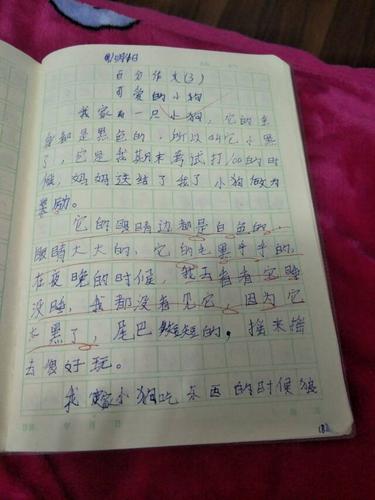 百分作文(3)
可爱的小狗
我家有一只小狗，它的全
身都是黑色的，所以叫它小黑
了，它是我期末考试打100的时
候，妈妈送给了我了小狗做为
奖励。
它的眼睛边都是白色的，
眼睛大大的，它的毛黑乎乎的，
在夜晚的时候，我去看看它睡
没睡，我都没有见它，因为它
太黑了，尾巴短短的，摇来摇
去很好玩。
我家小狗吃东西的时候狼